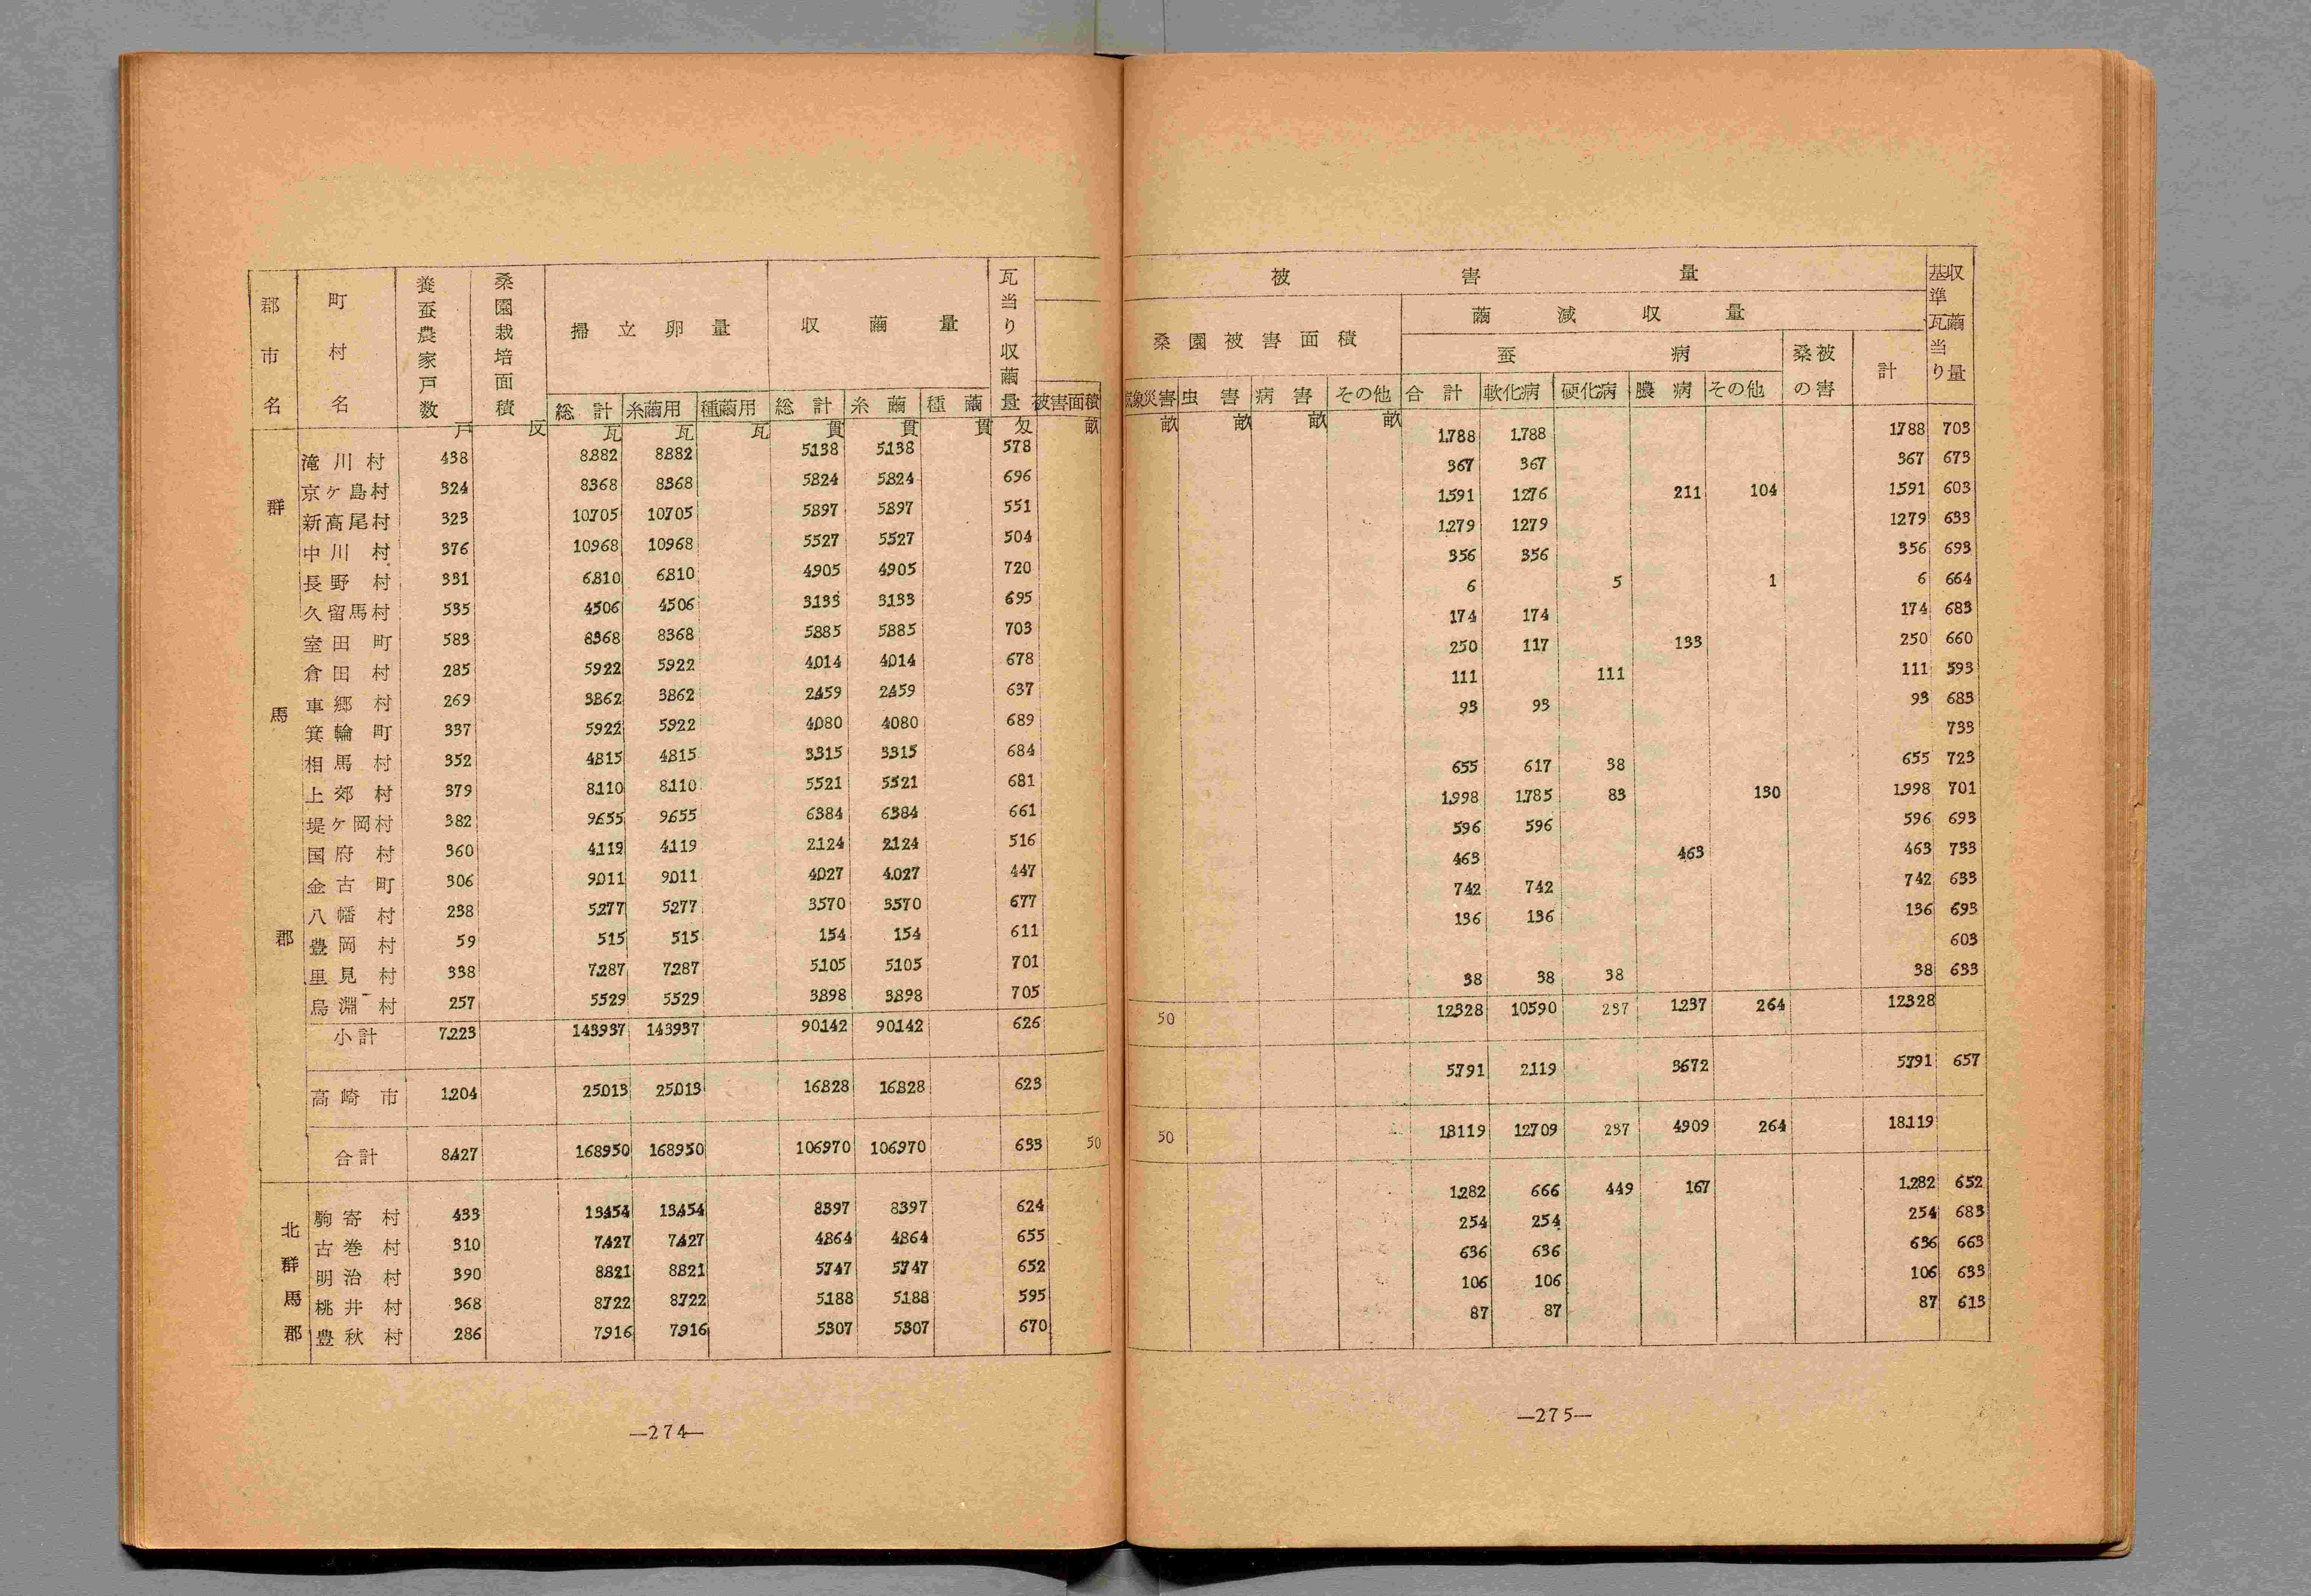 郡市名 町村名 養蚕農家戸数 桑園栽培面積 掃立卵量 収繭量 瓦当り収繭量
総計 糸繭用 種繭用 総計 糸繭 種繭 被害面積
戸 反 瓦 瓦 瓦 貫 貫 貫 匁 畝
群馬郡
滝川村 438 8882 8882 5138 5138 578
京ケ島村 324 8368 8368 5824 5824 696
新高尾村 323 10705 10705 5897 5897 551
中川村 376 10968 10968 5527 5527 504
長野村 331 6810 6810 4905 4905 720
久留馬村 535 4506 4506 3133 3133 695
室田町 583 8368 8368 5885 5885 703
倉田村 285 5922 5922 4014 4014 678
車郷村 269 3862 3862 2459 2459 637
箕輪町 337 5922 5922 4080 4080 689
相馬村 352 4815 4815 3315 3315 684
上郊村 379 8110 8110 5521 5521 681
堤ケ岡村 382 9655 9655 6384 6384 661
国府村 360 4119 4119 2124 2124 516
金古町 306 9011 9011 4027 4027 447
八幡村 238 5277 5277 3570 3570 677
豊岡村 59 515 515 154 154 611
里見村 338 7287 7287 5105 5105 701
烏淵村 257 5529 5529 3898 3898 705
小計 7223 143937 143937 90142 90142 626
高崎市 1204 25013 25013 16828 16828 623
合計 8427 168950 168950 106970 106970 633 50
北群馬郡
駒寄村 433 13454 13454 8397 8397 624
古巻村 310 7427 7427 4864 4864 655
明治村 390 8821 8821 5747 5747 652
桃井村 368 8722 8722 5188 5188 595
豊秋村 286 7916 7916 5307 5307 670
—274—
被害量 基準瓦当り収繭量
桑園被害面積 繭減収量
蚕病 桑の被害 計
気象災害 虫害 病害 その他 合計 軟化病 硬化病 膿病 その他
畝 畝 畝 畝
1788 1788 1788 703
367 367 367 673
1591 1276 211 104 1591 603
1279 1279 1279 633
356 356 356 693
6 5 1 6 664
174 174 174 683
250 117 133 250 660
111 111 111 593
93 93 93 683
733
655 617 38 655 723
1998 1785 83 130 1998 701
596 596 596 693
463 463 463 733
742 742 742 633
136 136 136 693
603
38 38 38 38 633
50 12328 10590 237 1237 264 12328
5791 2119 3672 5791 657
50 18119 12709 237 4909 264 18119
1282 666 449 167 1282 652
254 254 254 683
636 636 636 663
106 106 106 633
87 87 87 613
—275—